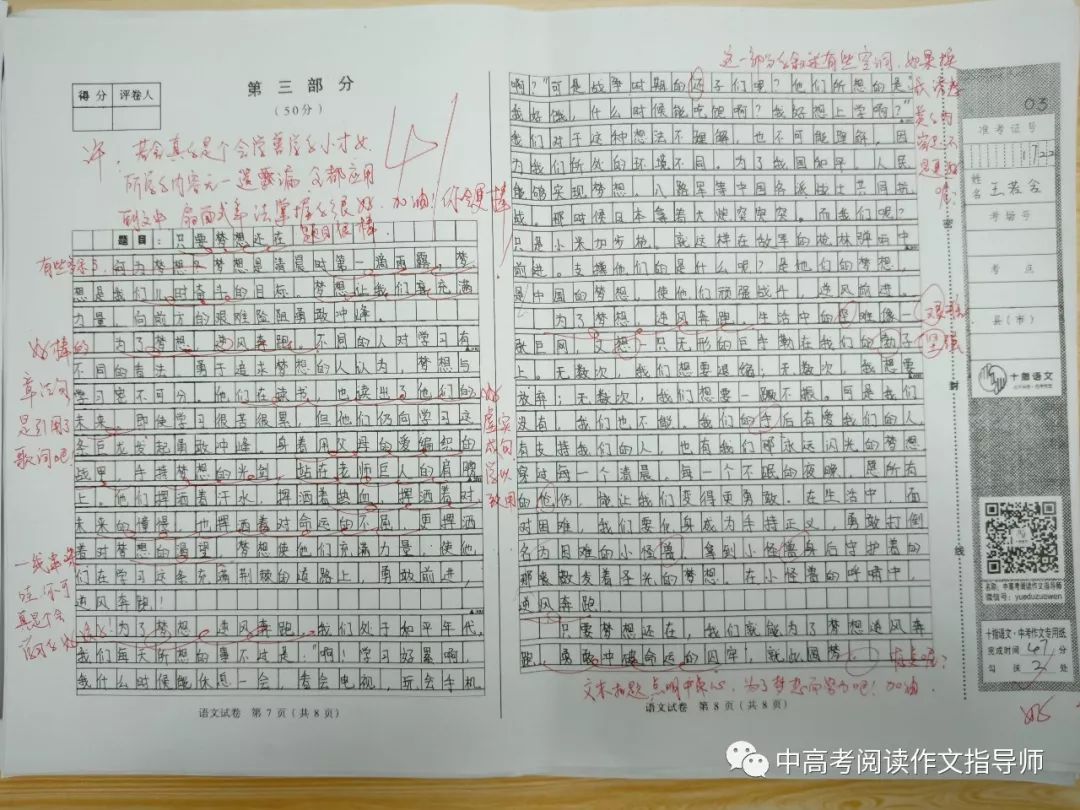 得分 评卷人
第三部分
(50分)
41
题目：只要梦想还在 题目很棒
何为梦想？梦想是清晨时第一滴雨露。梦
想是我们儿时奋斗的目标。梦想让我们充满
力量，向前方的艰难险阻勇敢冲锋。
为了梦想，逆风奔跑。不同的人对学习有
不同的看法，勇于追求梦想的人认为，梦想与
学习密不可分。他们在读书，也读出了他们的
未来。即使学习很苦很累，但他们仍向学习这
条巨龙发起勇敢冲锋。身着用父母的爱编织的
战甲，手持梦想的光剑，站在老师巨人的肩膀
上。他们挥洒着汗水，挥洒着热血，挥洒着对
未来的憧憬，也挥洒着对命运的不屈，更挥洒
着对梦想的渴望。梦想使他们充满力量，使他
们在学习这条充满荆棘的道路上，勇敢前进，
逆风奔跑！
为了梦想，逆风奔跑。我们处于和平年代，
我们每天所想的事不过是“啊！学习好累啊，
我什么时候能休息一会，看会电视，玩会手机
语文试卷 第7页（共8页）
好棒的
章法句
是引用了
歌词吧
啊？”可是战争时期的孩子们呢？他们所想的是“
我好饿，什么时候能吃饱啊？我好想上学啊？”
我们对于这种想法不理解，也不可能理解，因
为我们所处的环境不同。为了我国和平，人民
能够实现梦想，八路军等中国各派战士共同抗
战。那时候日本拿着大炮突突突。而我们呢？
只是小米加步枪。就这样在敌军的枪林弹雨中
前进。支撑他们的是什么呢？是他们的梦想，
是中国的梦想，使他们顽强战斗，逆风前进。
为了梦想，逆风奔跑。生活中的艰难像一
张巨网，又想一只无形的巨手勒在我们的脖子
上。无数次，我们想要退缩；无数次，我想要
放弃；无数次，我们想要一蹶不振。可是我们
没有，我们也不能。我们的手后有爱我们的人，
有支持我们的人，也有我们那永远闪光的梦想
穿过每一个清晨，每一个不眠的夜晚，愿所有
的伤，能让我们变得更勇敢。在生活中，面
对困难，我们要化身成为手持正义，勇敢打倒
名为困难的小怪兽，拿到小怪兽身后守护着的
那象散发着子光的梦想。在小怪兽的呼啸中，
逆风奔跑。
只要梦想还在，我们就能为了梦想逆风奔
跑，勇敢冲破命运的囚牢，就成圆梦。
文末扣题，点明中心，为了梦想而努力吧！加油
语文试卷 第8页（共8页）
03
准考证号
姓名
考场号
考点
县（市）
密
封
线
十指语文
名称：中高考阅读作文指导师
微信号：yueduzuowen
十指语文·中考作文专用纸
完成时间 47 分
勾 误 2 处
中高考阅读作文指导师